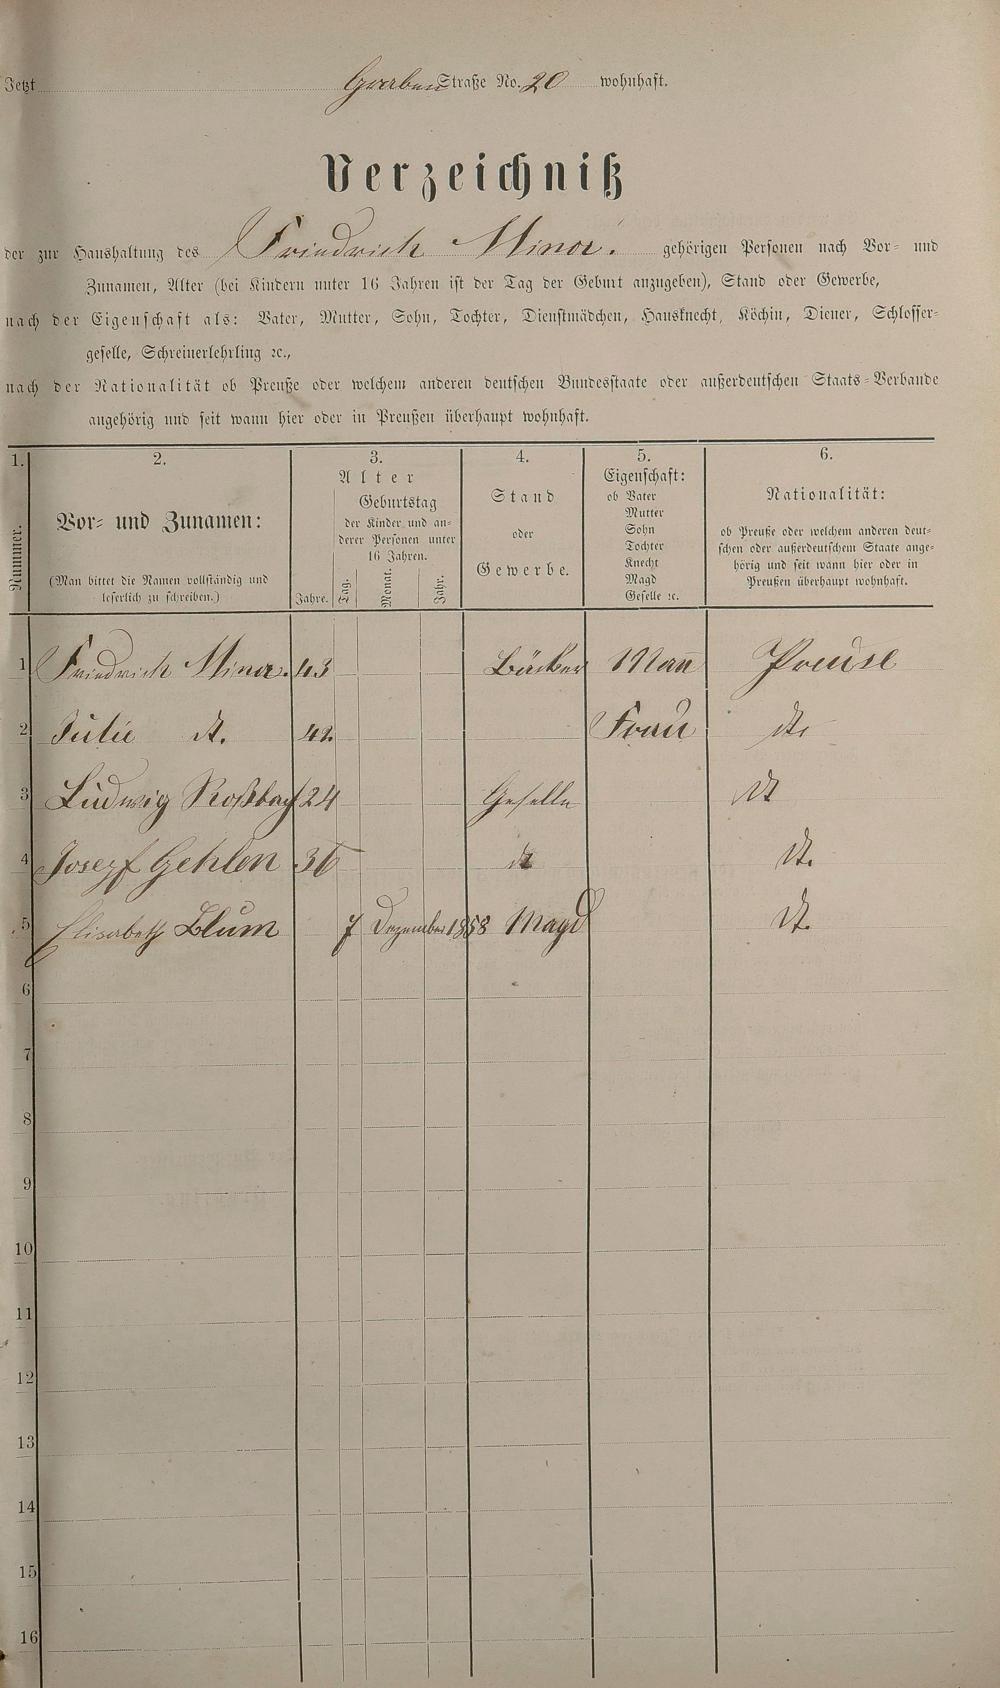 Jetzt Graben Straße No. 20 wohnhaft.
Verzeichniß
der zur Haushaltung des Friedrich Minor. gehörigen Personen nach Vor- und
Zunamen, Alter (bei Kindern unter 16 Jahren ist der Tag der Geburt anzugeben), Stand oder Gewerbe,
nach der Eigenschaft als: Vater, Mutter, Sohn, Tochter, Dienstmädchen, Hausknecht, Köchin, Diener, Schlosser-
geselle, Schreinerlehrling ꝛc.,
nach der Nationalität ob Preuße oder welchem anderen deutschen Bundesstaate oder außerdeutschen Staats-Verbande
angehörig und seit wann hier oder in Preußen überhaupt wohnhaft.
1.
Nummer.
2.
Vor- und Zunamen:
(Man bittet die Namen vollständig und
leserlich zu schreiben.)
3.
Alter
Jahre.
Geburtstag
der Kinder und an-
derer Personen unter
16 Jahren.
Tag.
Monat.
Jahr.
4.
Stand
oder
Gewerbe.
5.
Eigenschaft:
ob Vater
Mutter
Sohn
Tochter
Knecht
Magd
Geselle ꝛc.
6.
Nationalität:
ob Preuße oder welchem anderen deut-
schen oder außerdeutschem Staate ange-
hörig und seit wann hier oder in
Preußen überhaupt wohnhaft.
1 Friedrich Minor. 43 Bäcker Man̄ Preuse
2 Julie dt. 42. Frau dt.
3 Ludwig Roßbach 24 Geselle dt
4 Josepf Gehlen 36 dt dt.
5 Elisabeth Blum 7 Dezember 1858 Magd dt.
6
7
8
9
10
11
12
13
14
15
16